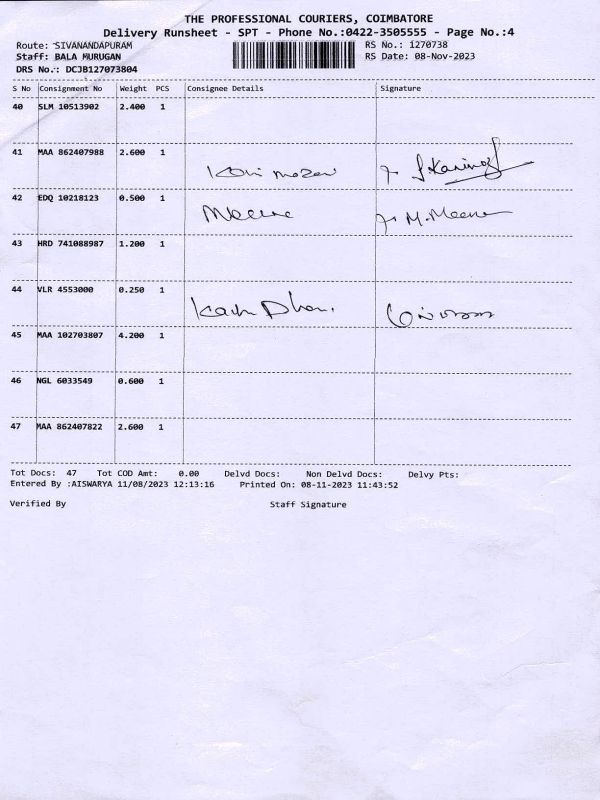 THE PROFESSIONAL COURIERS, COIMBATORE
Delivery Runsheet - SPT - Phone No.:0422-3505555 - Page No.:4
Route: SIVANANDAPURAM RS No.: 1270738
Staff: BALA MURUGAN RS Date: 08-Nov-2023
DRS No.: DCJB127073804
S No Consignment No Weight PCS Consignee Details Signature
40 SLM 10513902 2.400 1
41 MAA 862407988 2.600 1
42 EDQ 10218123 0.500 1 Meena M. Meena
43 HRD 741088987 1.200 1
44 VLR 4553000 0.250 1
45 MAA 102703807 4.200 1
46 NGL 6033549 0.600 1
47 MAA 862407822 2.600 1
Tot Docs: 47 Tot COD Amt: 0.00 Delvd Docs: Non Delvd Docs: Delvy Pts:
Entered By :AISWARYA 11/08/2023 12:13:16 Printed On: 08-11-2023 11:43:52
Verified By Staff Signature